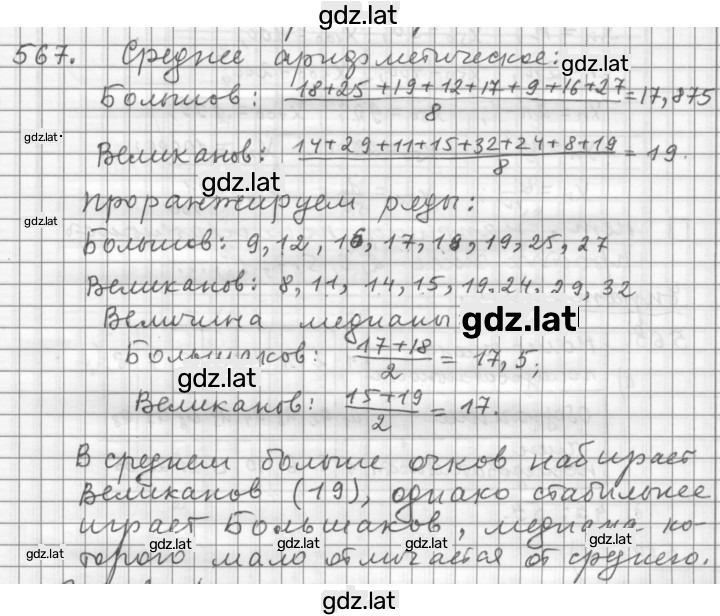 gdz.lat
567. Среднее арифметическое:
gdz.lat
Большов: 18+25+19+12+17+9+16+27 / 8 = 17,875
gdz.lat
Великанов: 14+29+11+15+32+24+8+19 / 8 = 19.
gdz.lat
Проранжируем ряды:
gdz.lat
Большов: 9, 12, 16, 17, 18, 19, 25, 27
Великанов: 8, 11, 14, 15, 19. 24. 29, 32
Величина медианы
gdz.lat
Большаков: 17+18 / 2 = 17,5;
gdz.lat
Великанов: 15+19 / 2 = 17.
В среднем больше очков набирает
Великанов (19), однако стабильнее
играет Большаков, медиана ко-
gdz.lat gdz.lat gdz.lat gdz.lat
торого мало отличается от среднего.
gdz.lat